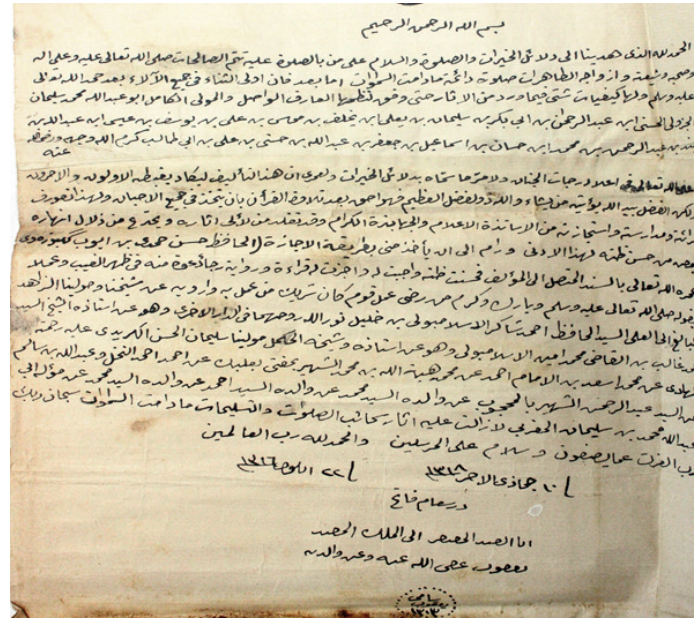 بسم الله الرحمن الرحيم
الحمد لله الذى هدينا الى دلائل الخيرات والصلوة والسلام على من بالصلوة عليه تتم الصالحات صلى الله تعالى عليه وعلى اله
وصحبه وشيعته وازواجه الطاهرات صلوة دائمة مادامت السموات اما بعد فان اولى الثناء فى جميع الآلاء بعد حمد الله تعالى
عليه وسلم ولها كيفيات شتى فيما ورد من الاثار حتى وفق لنظمها العارف الواصل والمولى الكامل ابو عبد الله محمد بن سليمان
الجزولى الحسنى ابن عبد الرحمن بن ابى بكر بن سليمان بن يعلى بن يخلف بن موسى بن على بن يوسف بن عيسى ابن عبد الله بن
بن عبد الرحمن بن محمد ابن حسان بن اسماعيل بن جعفر بن عبد الله بن حسنى بن على بن ابى طالب كرم الله وجهه ورضى الله
عنه
الله تعالى فى اعلا درجات الجنان ولامر ما سماه بدلائل الخيرات ولعمرى ان هذا التأليف ليكاد يغبطه الاولون والآخرون
ولكن الفضل بيد الله يؤتيه من يشاء والله ذو الفضل العظيم فهو احق بعد تلاوة القرآن بان يتخذ فى جميع الاحيان ولهذا تعورف
ومدارسته واستجازته من الاساتذة الاعلام والجهابذة الكرام وقد تقلد من لآلى اثاره و من ذلال انهاره
من حسن ظنه لهذا الادنى ورام الى ان يأخذ منى بطريقة الاجازة الحافظ حسن حمدى بن ايوب
الله تعالى بالسند المتصل الى المؤلف فحسنت ظنه واجبت له واجزت له قراءة ورواية رجاء دعوة منه فى ظهر الغيب وعملا
بقوله صلى الله تعالى عليه وسلم وبارك وكرم من رضى عن قوم كان شريك من عمل به وارويه عن شيخنا ومولينا الزاهد
العلى السيد الحافظ احمد شاكر الاسلامبولى بن خليل نور الله روحهما فى الدار الاخرى وهو عن استاذه الشيخ السيد
غالب بن القاضى محمد امين الاسلامبولى وهو عن استاذه وشيخه الكامل مولينا سليمان الحسن الكريدى عليه رحمة
الهادى عن محمد اسعد بن الامام احمد عن محمد هبة الله بن محمد الشهير بمفتى بعلبك عن احمد احمد النخلى وعبد الله بن سالم
عن السيد عبد الرحمن الشهير بالمحجوب عن والده السيد محمد عن والده السيد احمد عن والده السيد محمد عن مؤلفه ابى
عبد الله محمد بن سليمان المغربى لازالت عليه اثار سحائب الصلوات والتسليمات مادامت السموات سبحان ربك
رب العزت عما يصفون وسلام على المرسلين والحمد لله رب العالمين
١٠ جماذى الاخر ١٣١٨ ٢٢ ايلول ١٣١٦
درسعام فاتح
انا العبد الحقير الى الملك
يعقوب عفى الله عنه وعن والديه
١٣٠٣